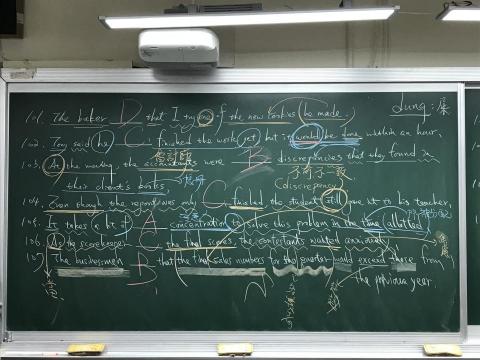 101. The baker D that I try one of the new cookies he made.
102. Tony said he C finished the work yet but it would be done within an hour.
103. At the meeting the accountants were B discrepancies that they found in
會計師
their client's books.
不一致
(discrepancy)
104. Even though the report was only C finished the student still gave it to his teacher.
105. It takes a bit of A concentration to solve this problem in the time allotted.
106. As the scorekeeper C the final scores, the contestants waited anxiously.
107. The businessmen B that the final sales numbers for the quarter would exceed those from
the previous year.